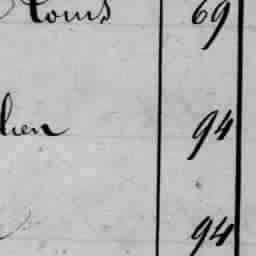 Louis 69
lien 94
94